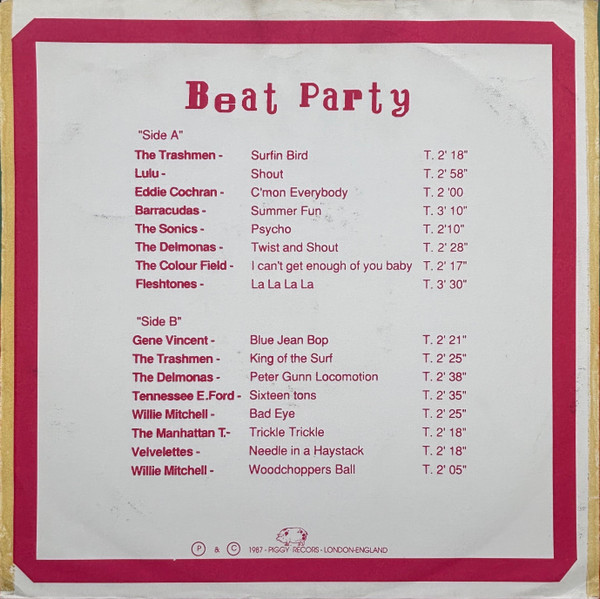 Beat Party
"Side A"
The Trashmen - Surfin Bird T. 2' 18"
Lulu - Shout T. 2' 58"
Eddie Cochran - C'mon Everybody T. 2 '00
Barracudas - Summer Fun T. 3' 10"
The Sonics - Psycho T. 2'10"
The Delmonas - Twist and Shout T. 2' 28"
The Colour Field - I can't get enough of you baby T. 2' 17"
Fleshtones - La La La La T. 3' 30"
"Side B"
Gene Vincent - Blue Jean Bop T. 2' 21"
The Trashmen - King of the Surf T. 2' 25"
The Delmonas - Peter Gunn Locomotion T. 2' 38"
Tennessee E.Ford - Sixteen tons T. 2' 35"
Willie Mitchell - Bad Eye T. 2' 25"
The Manhattan T.- Trickle Trickle T. 2' 18"
Velvelettes - Needle in a Haystack T. 2' 18"
Willie Mitchell - Woodchoppers Ball T. 2' 05"
P & C 1987 - PIGGY RECORS - LONDON-ENGLAND